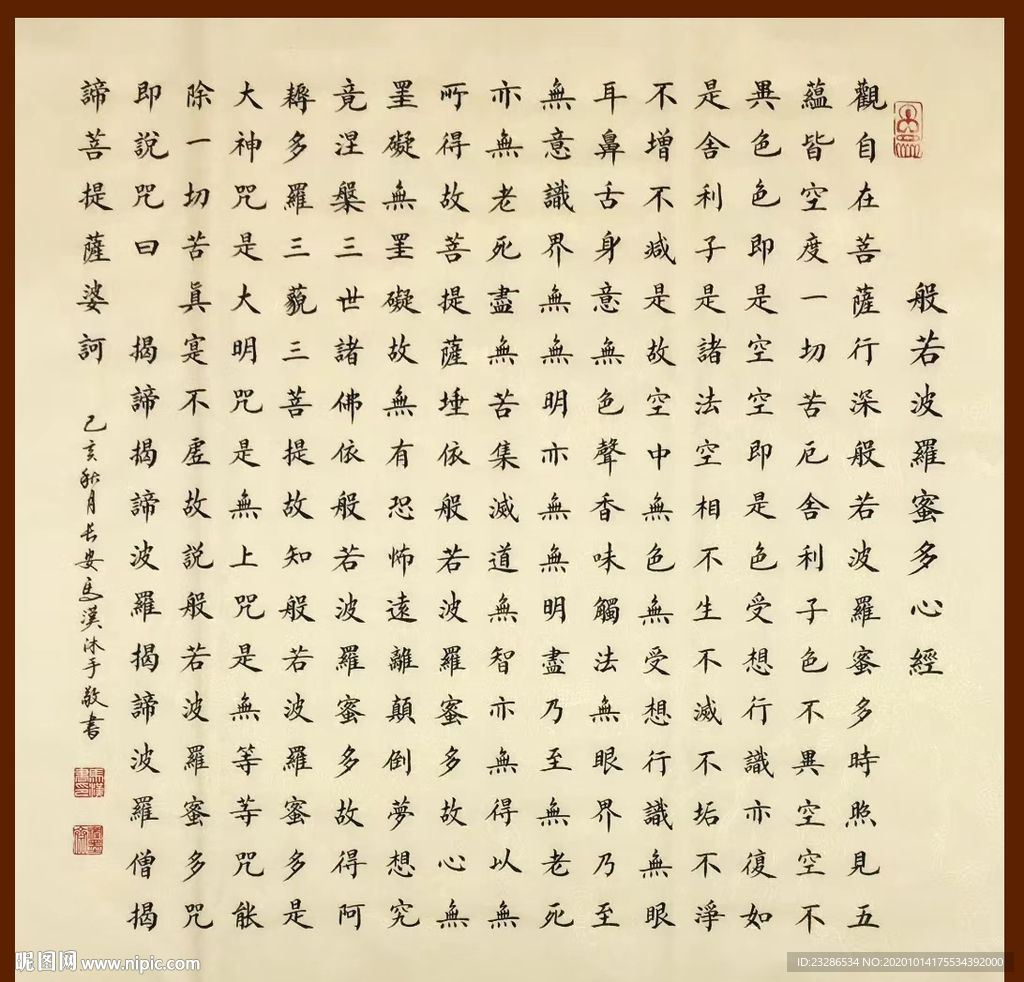 般若波羅蜜多心經
觀自在菩薩行深般若波羅蜜多時照見五
蘊皆空度一切苦厄舍利子色不異空空不
異色色即是空空即是色受想行識亦復如
是舍利子是諸法空相不生不滅不垢不淨
不增不減是故空中無色無受想行識無眼
耳鼻舌身意無色聲香味觸法無眼界乃至
無意識界無無明亦無無明盡乃至無老死
亦無老死盡無苦集滅道無智亦無得以無
所得故菩提薩埵依般若波羅蜜多故心無
罣礙無罣礙故無有恐怖遠離顛倒夢想究
竟涅槃三世諸佛依般若波羅蜜多故得阿
耨多羅三藐三菩提故知般若波羅蜜多是
大神咒是大明咒是無上咒是無等等咒能
除一切苦眞寔不虛故說般若波羅蜜多咒
即說咒曰 揭諦揭諦波羅揭諦波羅僧揭
諦菩提薩婆訶
己亥秋月長安馬漢沐手敬書
昵图网 www.nipic.com
ID:23286534 NO:20201014175534392000